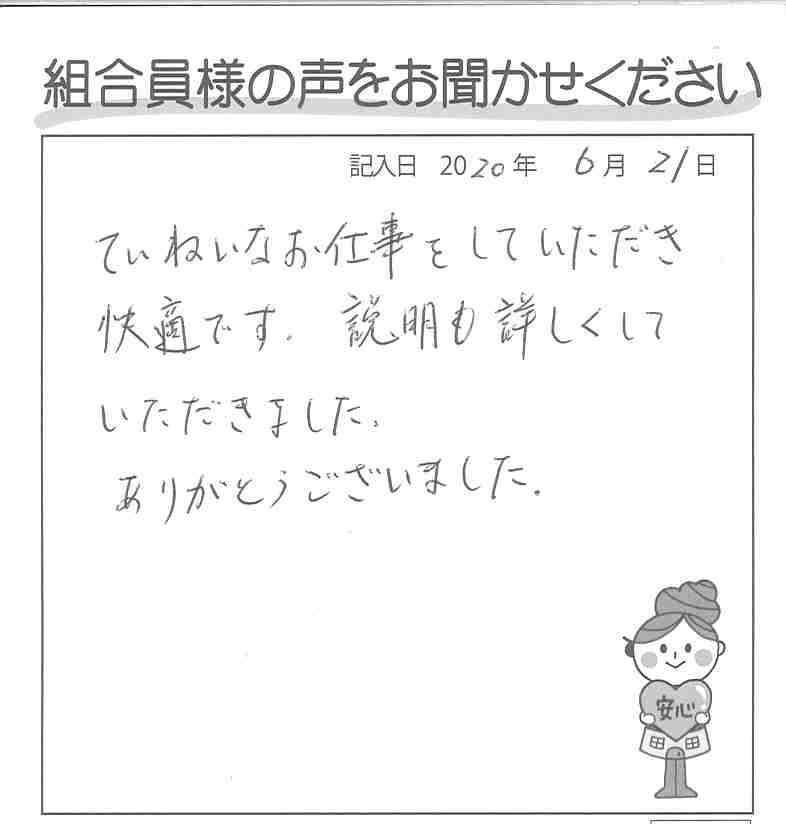 組合員様の声をお聞かせください
記入日 2020年 6月 21日
ていねいなお仕事をしていただき
快適です。説明も詳しくして
いただきました。
ありがとうございました。
安心